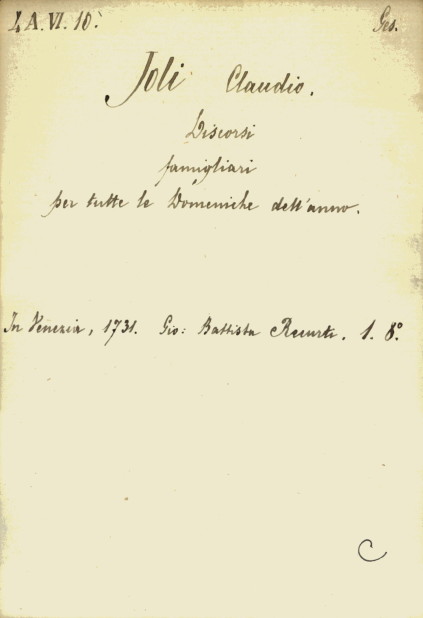 4.A.VI.10.
Ges.
Joli Claudio.
Discorsi
famigliari
per tutte le Domeniche dell'anno.
In Venezia, 1731. Gio: Battista Recurti. 1. 8.°
C